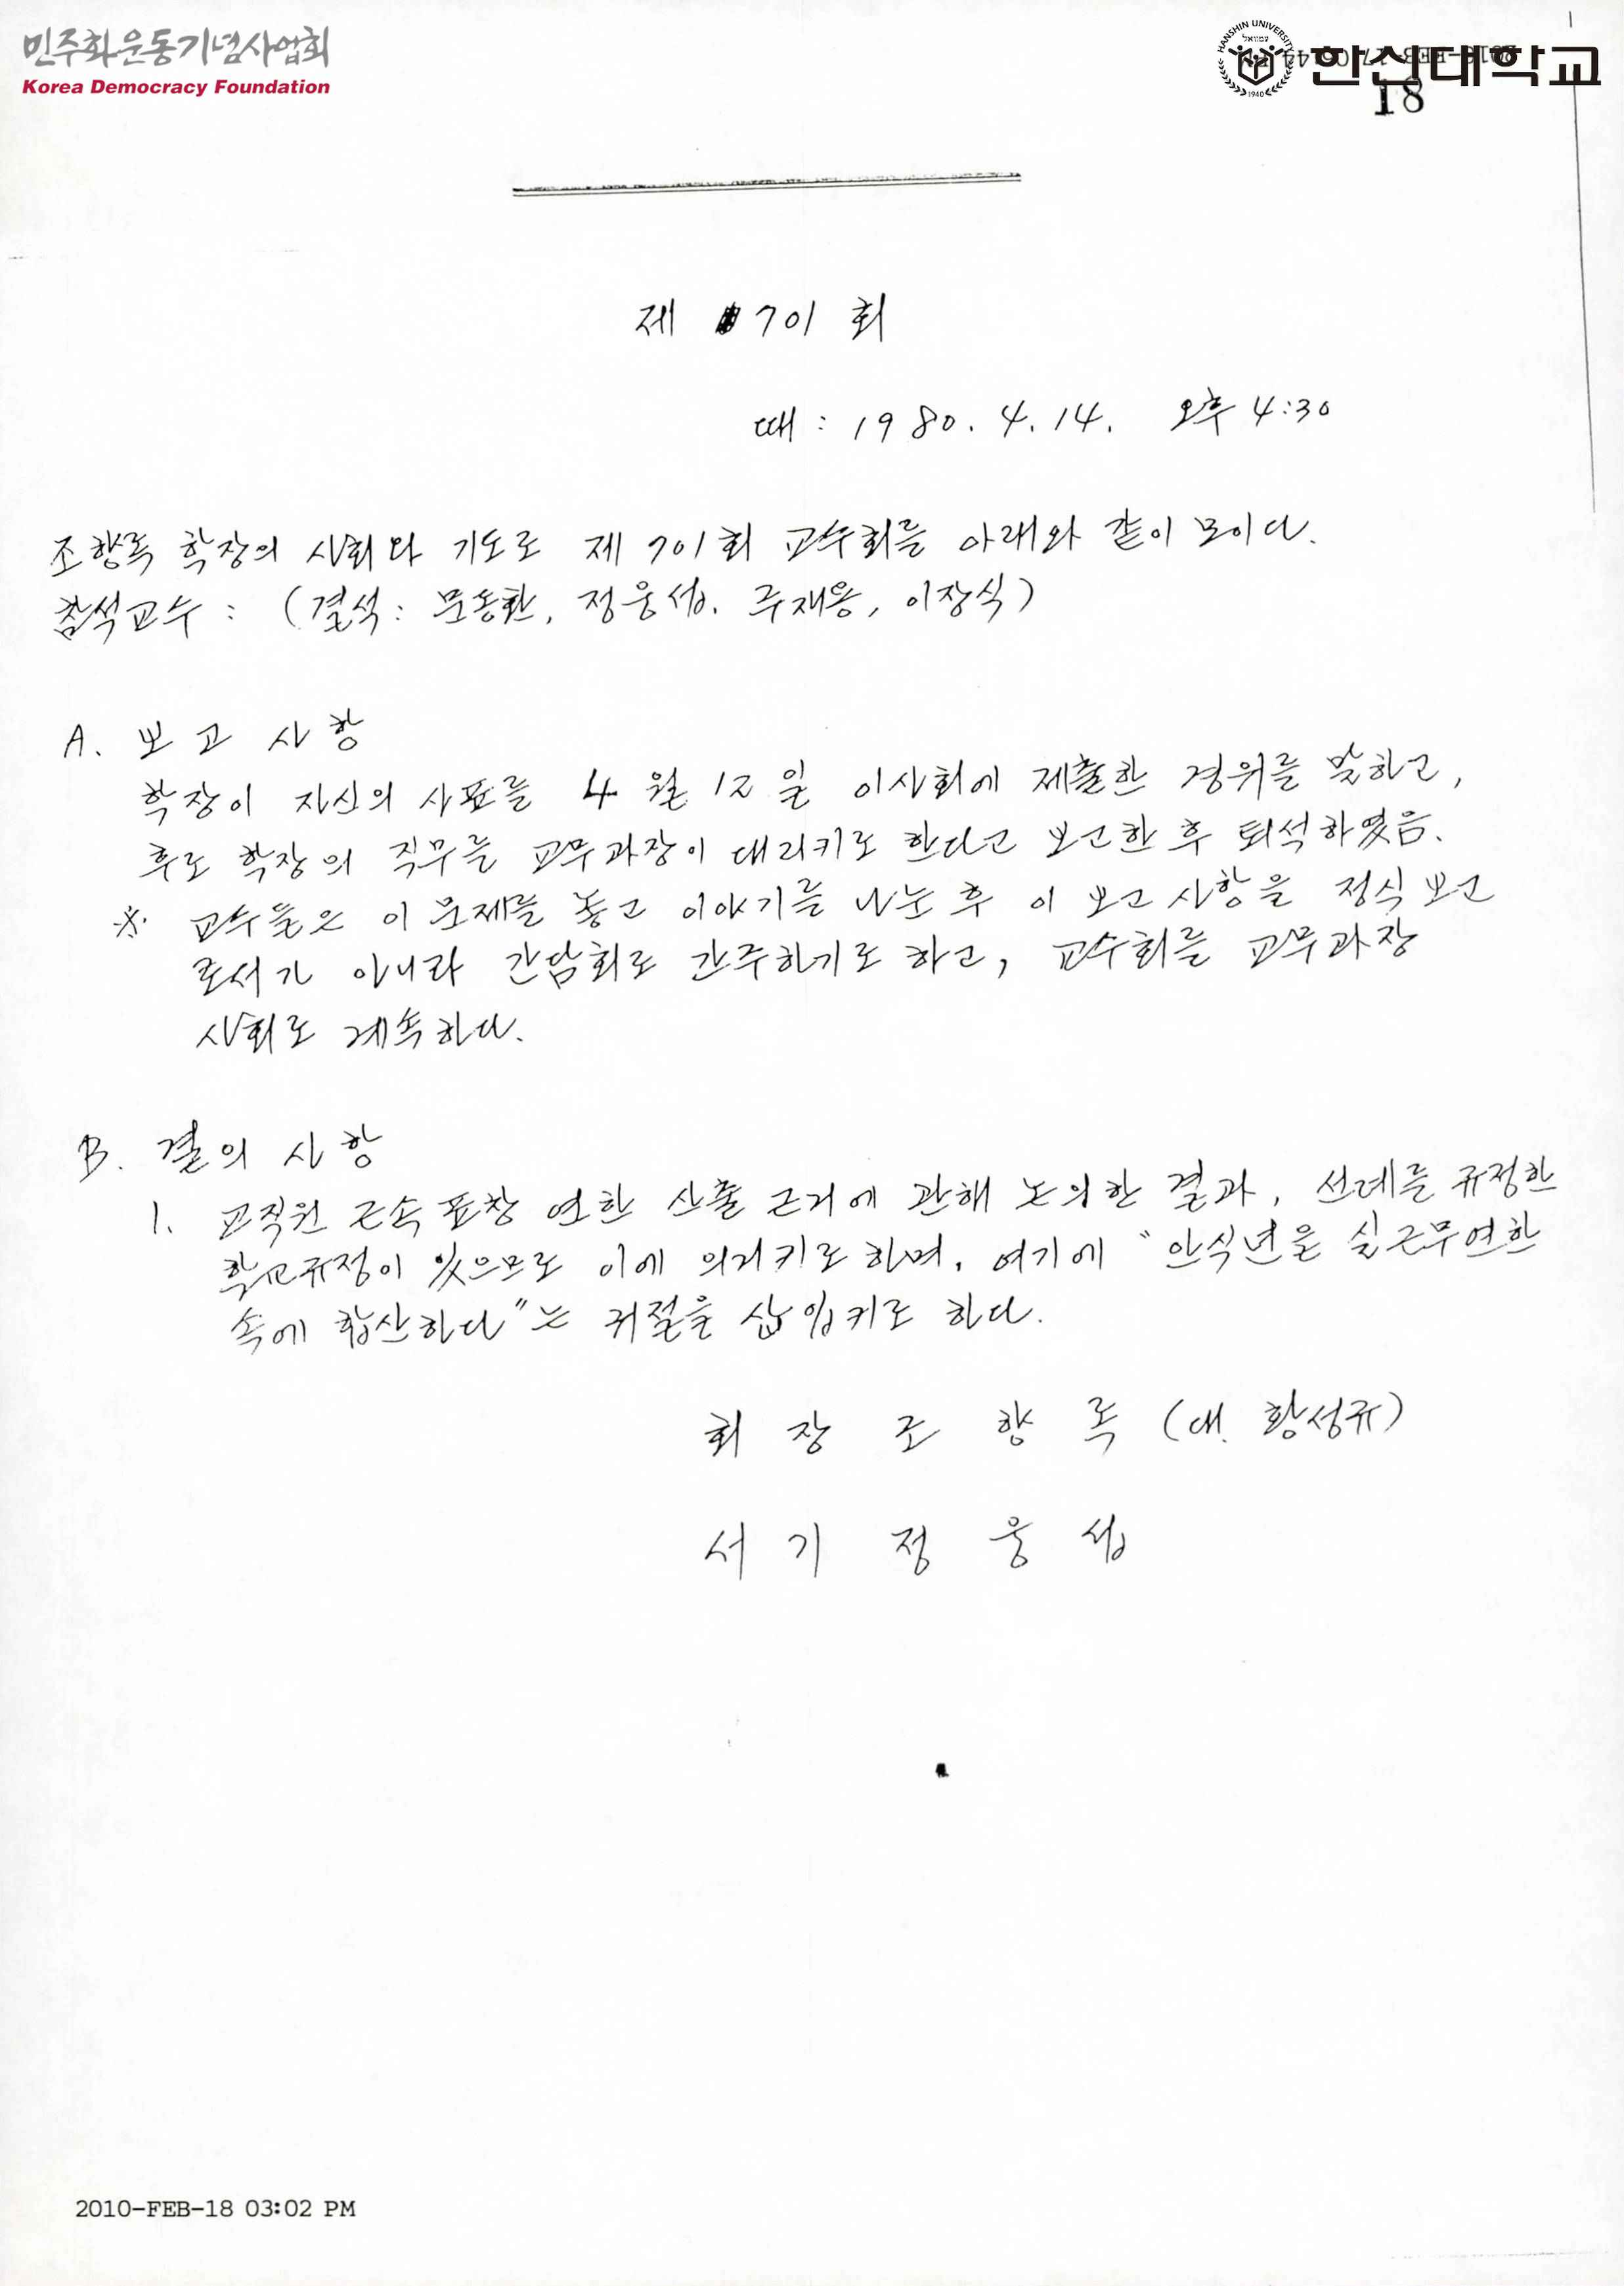 민주화운동기념사업회
Korea Democracy Foundation
HANSHIN UNIVERSITY
1940
한신대학교
18
제 701 회
때 : 1980. 4. 14. 오후 4:30
조향록 학장의 사회와 기도로 제 701회 교수회를 아래와 같이 모이다.
참석교수 : (결석: 문동환, 정웅섭, 주재용, 이장식)
A. 보고 사항
학장이 자신의 사표를 4월 12일 이사회에 제출한 경위를 말하고,
후로 학장의 직무를 교무과장이 대리키로 한다고 보고한 후 퇴석하였음.
※ 교수들은 이 문제를 놓고 이야기를 나눈 후 이 보고 사항을 정식 보고
로서가 아니라 간담회로 간주하기로 하고, 교수회를 교무과장
사회로 계속하다.
B. 결의 사항
1. 교직원 근속 표창 연한 산출 근거에 관해 논의한 결과, 선례를 규정한
학교규정이 있으므로 이에 의거키로 하며, 여기에 "안식년을 실근무연한
속에 합산하다"는 귀절을 삽입키로 하다.
회 장 조 향 록 (대. 황성규)
서 기 정 웅 섭
2010-FEB-18 03:02 PM